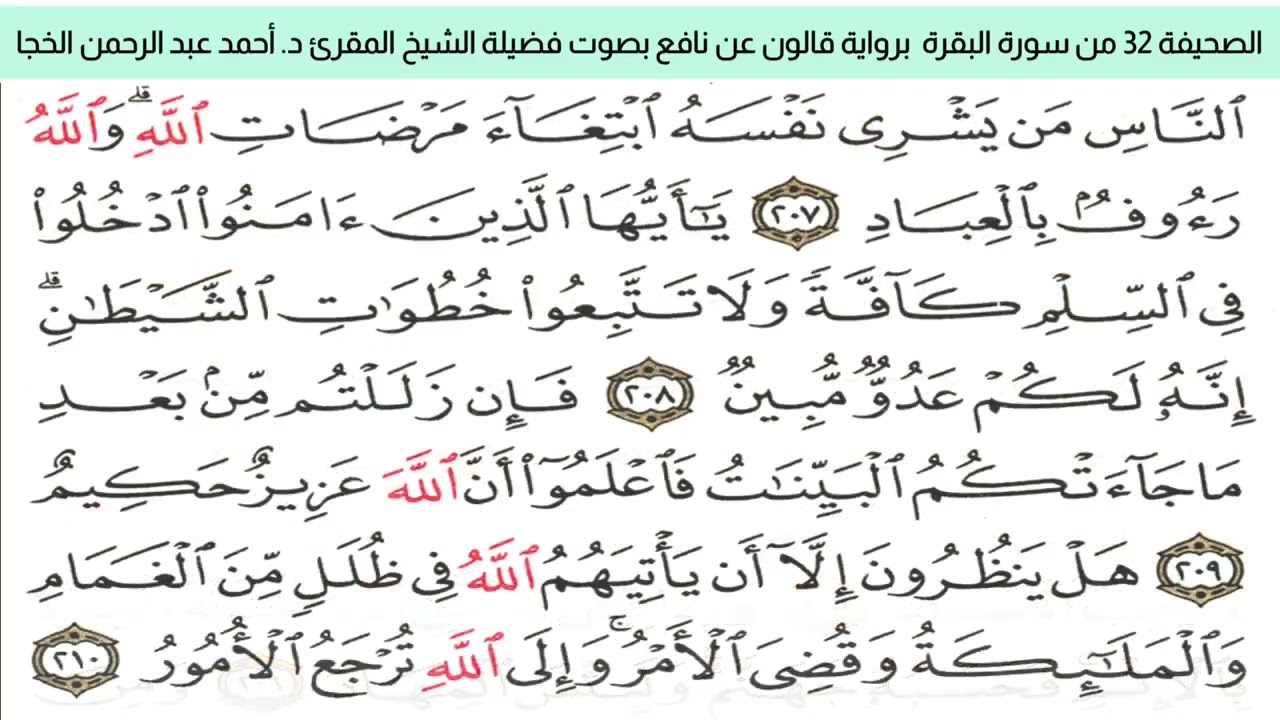 الصحيفة 32 من سورة البقرة برواية قالون عن نافع بصوت فضيلة الشيخ المقرئ د. أحمد عبد الرحمن الخجا
اَ۬لنَّاسِ مَن يَشْرِى نَفْسَهُ اُ۪بْتِغَآءَ مَرْضَاتِ اِ۬للَّهِۗ وَاللَّهُ
رَءُوفُۢ بِالْعِبَادِ ٢٠٧ يَٰٓأَيُّهَا اَ۬لَّذِينَ ءَامَنُواْ اُ۟دْخُلُواْ
فِى اِ۬لسِّلْمِ كَآفَّةً وَلَا تَتَّبِعُواْ خُطُوَٰتِ اِ۬لشَّيْطَٰنِۗ
إِنَّهُۥ لَكُمْ عَدُوٌّ مُّبِينٌ ٢٠٨ فَإِن زَلَلْتُم مِّنۢ بَعْدِ
مَا جَآءَتْكُمُ اُ۬لْبَيِّنَٰتُ فَاعْلَمُوٓاْ أَنَّ اَ۬للَّهَ عَزِيزٌ حَكِيمٌ
٢٠٩ هَلْ يَنظُرُونَ إِلَّآ أَن يَأْتِيَهُمُ اُ۬للَّهُ فِى ظُلَلٍ مِّنَ اَ۬لْغَمَامِ
وَالْمَلَٰٓئِكَةُ وَقُضِىَ اَ۬لْأَمْرُۚ وَإِلَى اَ۬للَّهِ تُرْجَعُ اُ۬لْأُمُورُ ٢١٠